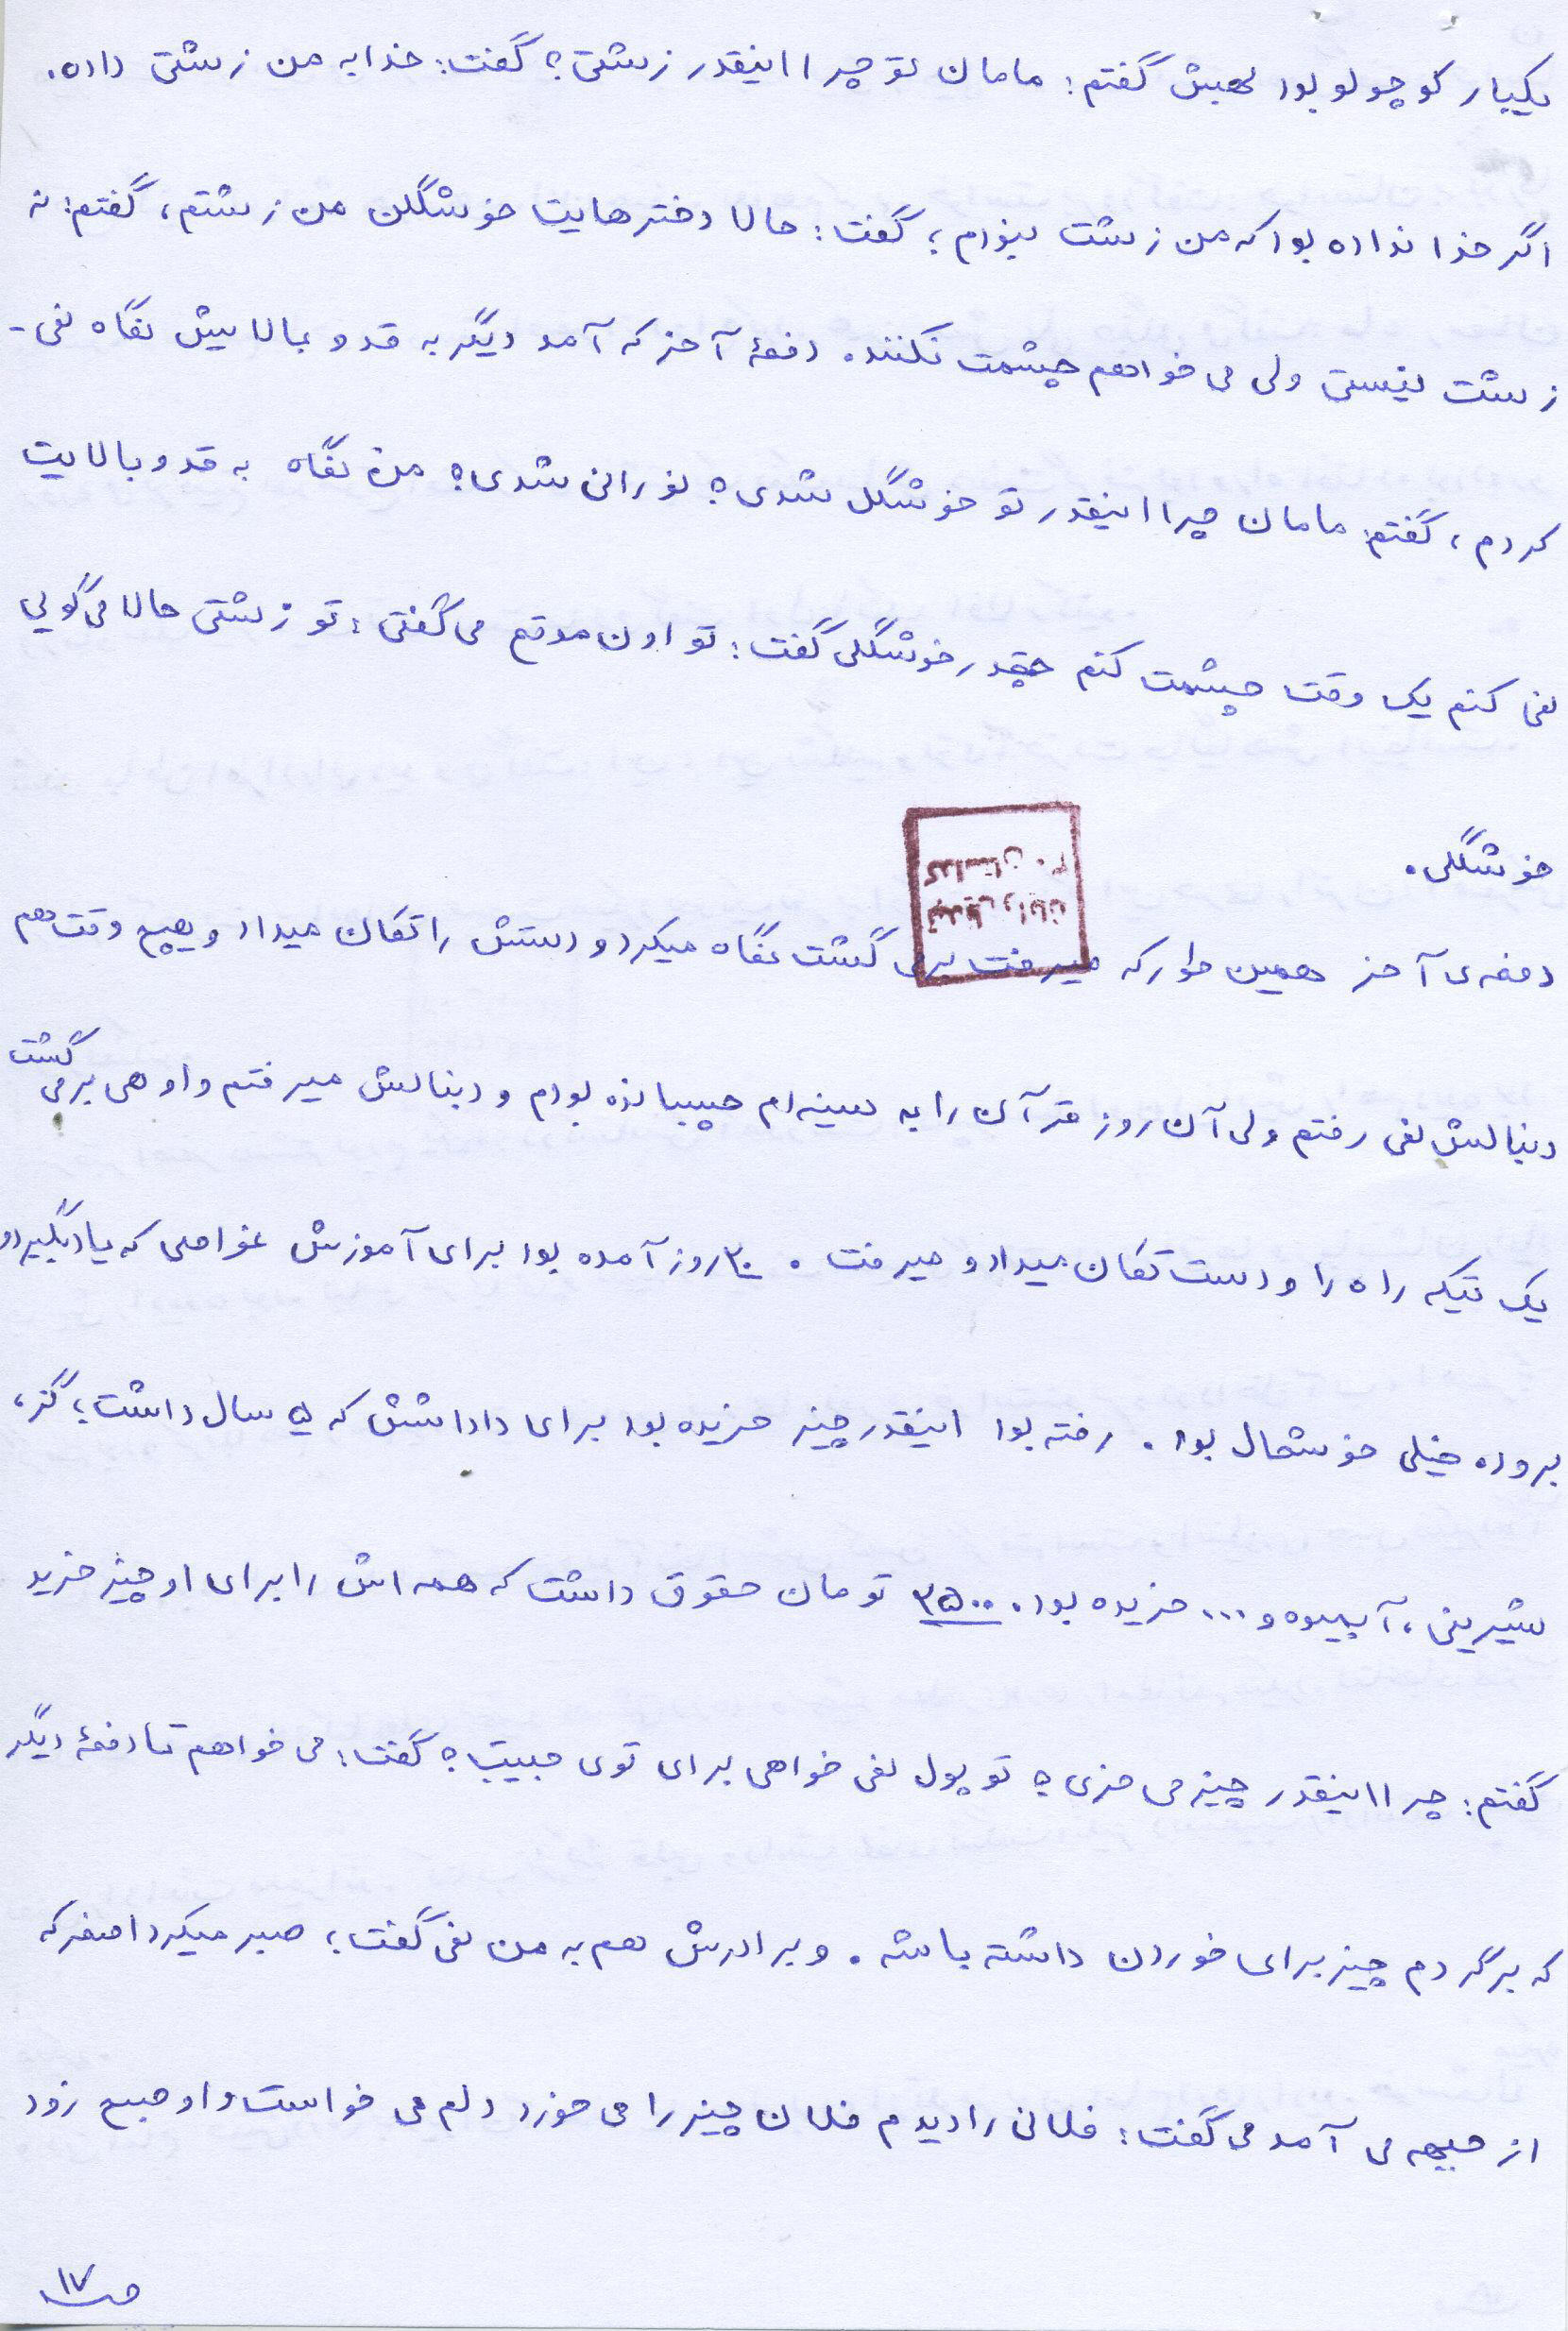 یکبار کوچولو بود بهش گفتم: مامان تو چرا اینقدر زشتی؟ گفت: خدا به من زشتی داده.
اگر خدا نداده بود که من زشت نبودم؛ گفت: حالا دخترهایت خوشگلن من زشتم، گفتم: نه
زشت نیستی ولی می خواهم چشمت نکنند. دفعهٔ آخر که آمد دیگر به قد و بالایش نگاه نمی-
کردم، گفتم: مامان چرا اینقدر تو خوشگل شدی؟ نورانی شدی؟ من نگاه به قد و بالایت
نمی کنم یک وقت چشمت کنم چقدر خوشگلی گفت: تو اون موقع می گفتی: تو زشتی حالا می گویی
خوشگلی.
دفعه ی آخر همین طور که میرفت برمی گشت نگاه میکرد و دستش را تکان میداد و هیچ وقت هم
دنبالش نمی رفتم ولی آن روز قرآن را به سینه ام چسبانده بودم و دنبالش میرفتم و او هی برمی گشت
یک تیکه راه را و دست تکان میداد و میرفت. ۲۰ روز آمده بود برای آموزش غواصی که یاد بگیرد و
بروده خیلی خوشحال بود. رفته بود اینقدر چیز خریده بود برای داداشش که ۵ سال داشت؛ گز،
شیرینی، آبمیوه و ... خریده بود. ۲۵۰۰ تومان حقوق داشت که همه اش را برای او چیز خرید
گفتم: چرا اینقدر چیز می خری؟ تو پول نمی خواهی برای توی جیبت؟ گفت: می خواهم تا دفعهٔ دیگر
که برگردم چیز برای خوردن داشته باشه. و برادرش هم به من نمی گفت؛ صبر میکرد اصغر که
از جبهه می آمد می گفت: فلانی را دیدم فلان چیز را می خورد دلم می خواست و او صبح زود
ص ۱۷